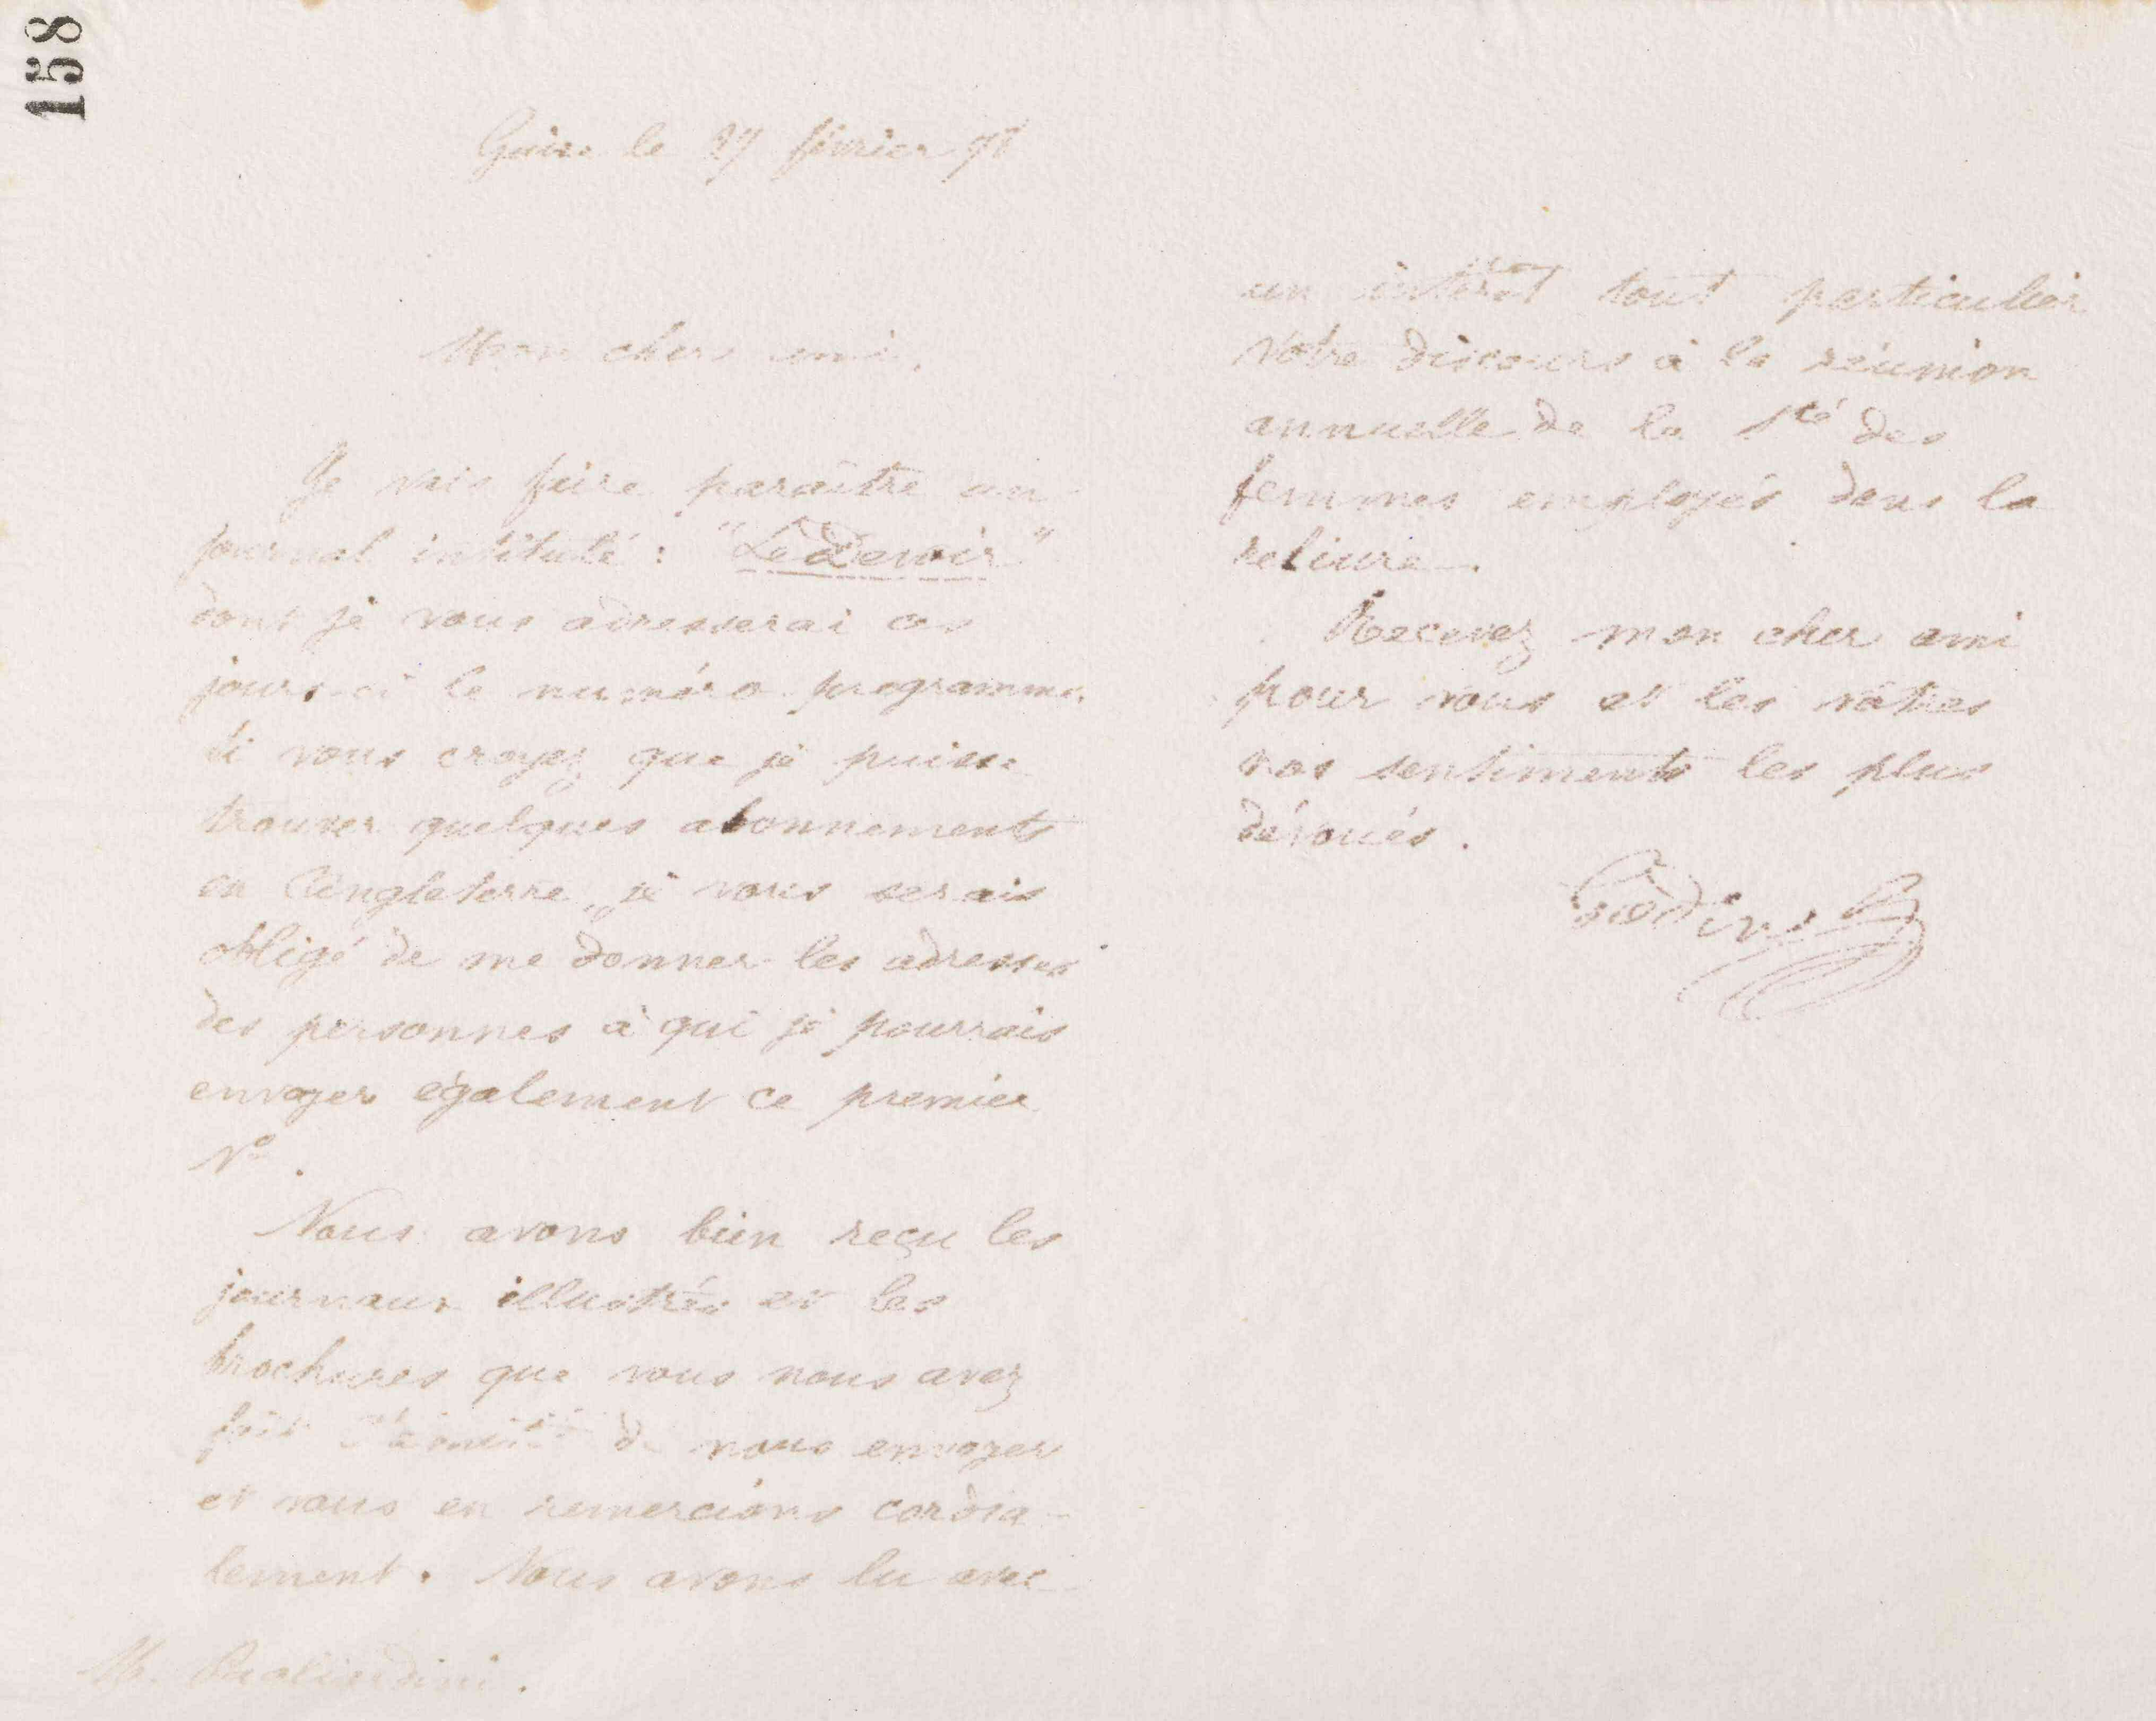 158
Guise le 27 février 78
Mon cher ami,
Je vais faire paraître un
journal intitulé : "Le Devoir"
dont je vous adresserai ces
jours-ci le numéro programme.
Si vous croyez que je puisse
trouver quelques abonnements
en Angleterre, je vous serais
obligé de me donner les adresses
des personnes à qui je pourrais
envoyer également ce premier
No.
Nous avons bien reçu les
journaux illustrés et les
brochures que vous nous avez
fait de nous envoyer
et vous en remercions cordia-
lement. Nous avons lu avec
M.
un intérêt tout particulier
votre discours à la réunion
annuelle de la Sté des
femmes employés dans la
reliure.
Recevez mon cher ami
pour vous et les vôtres
nos sentiments les plus
dévoués.
Godin